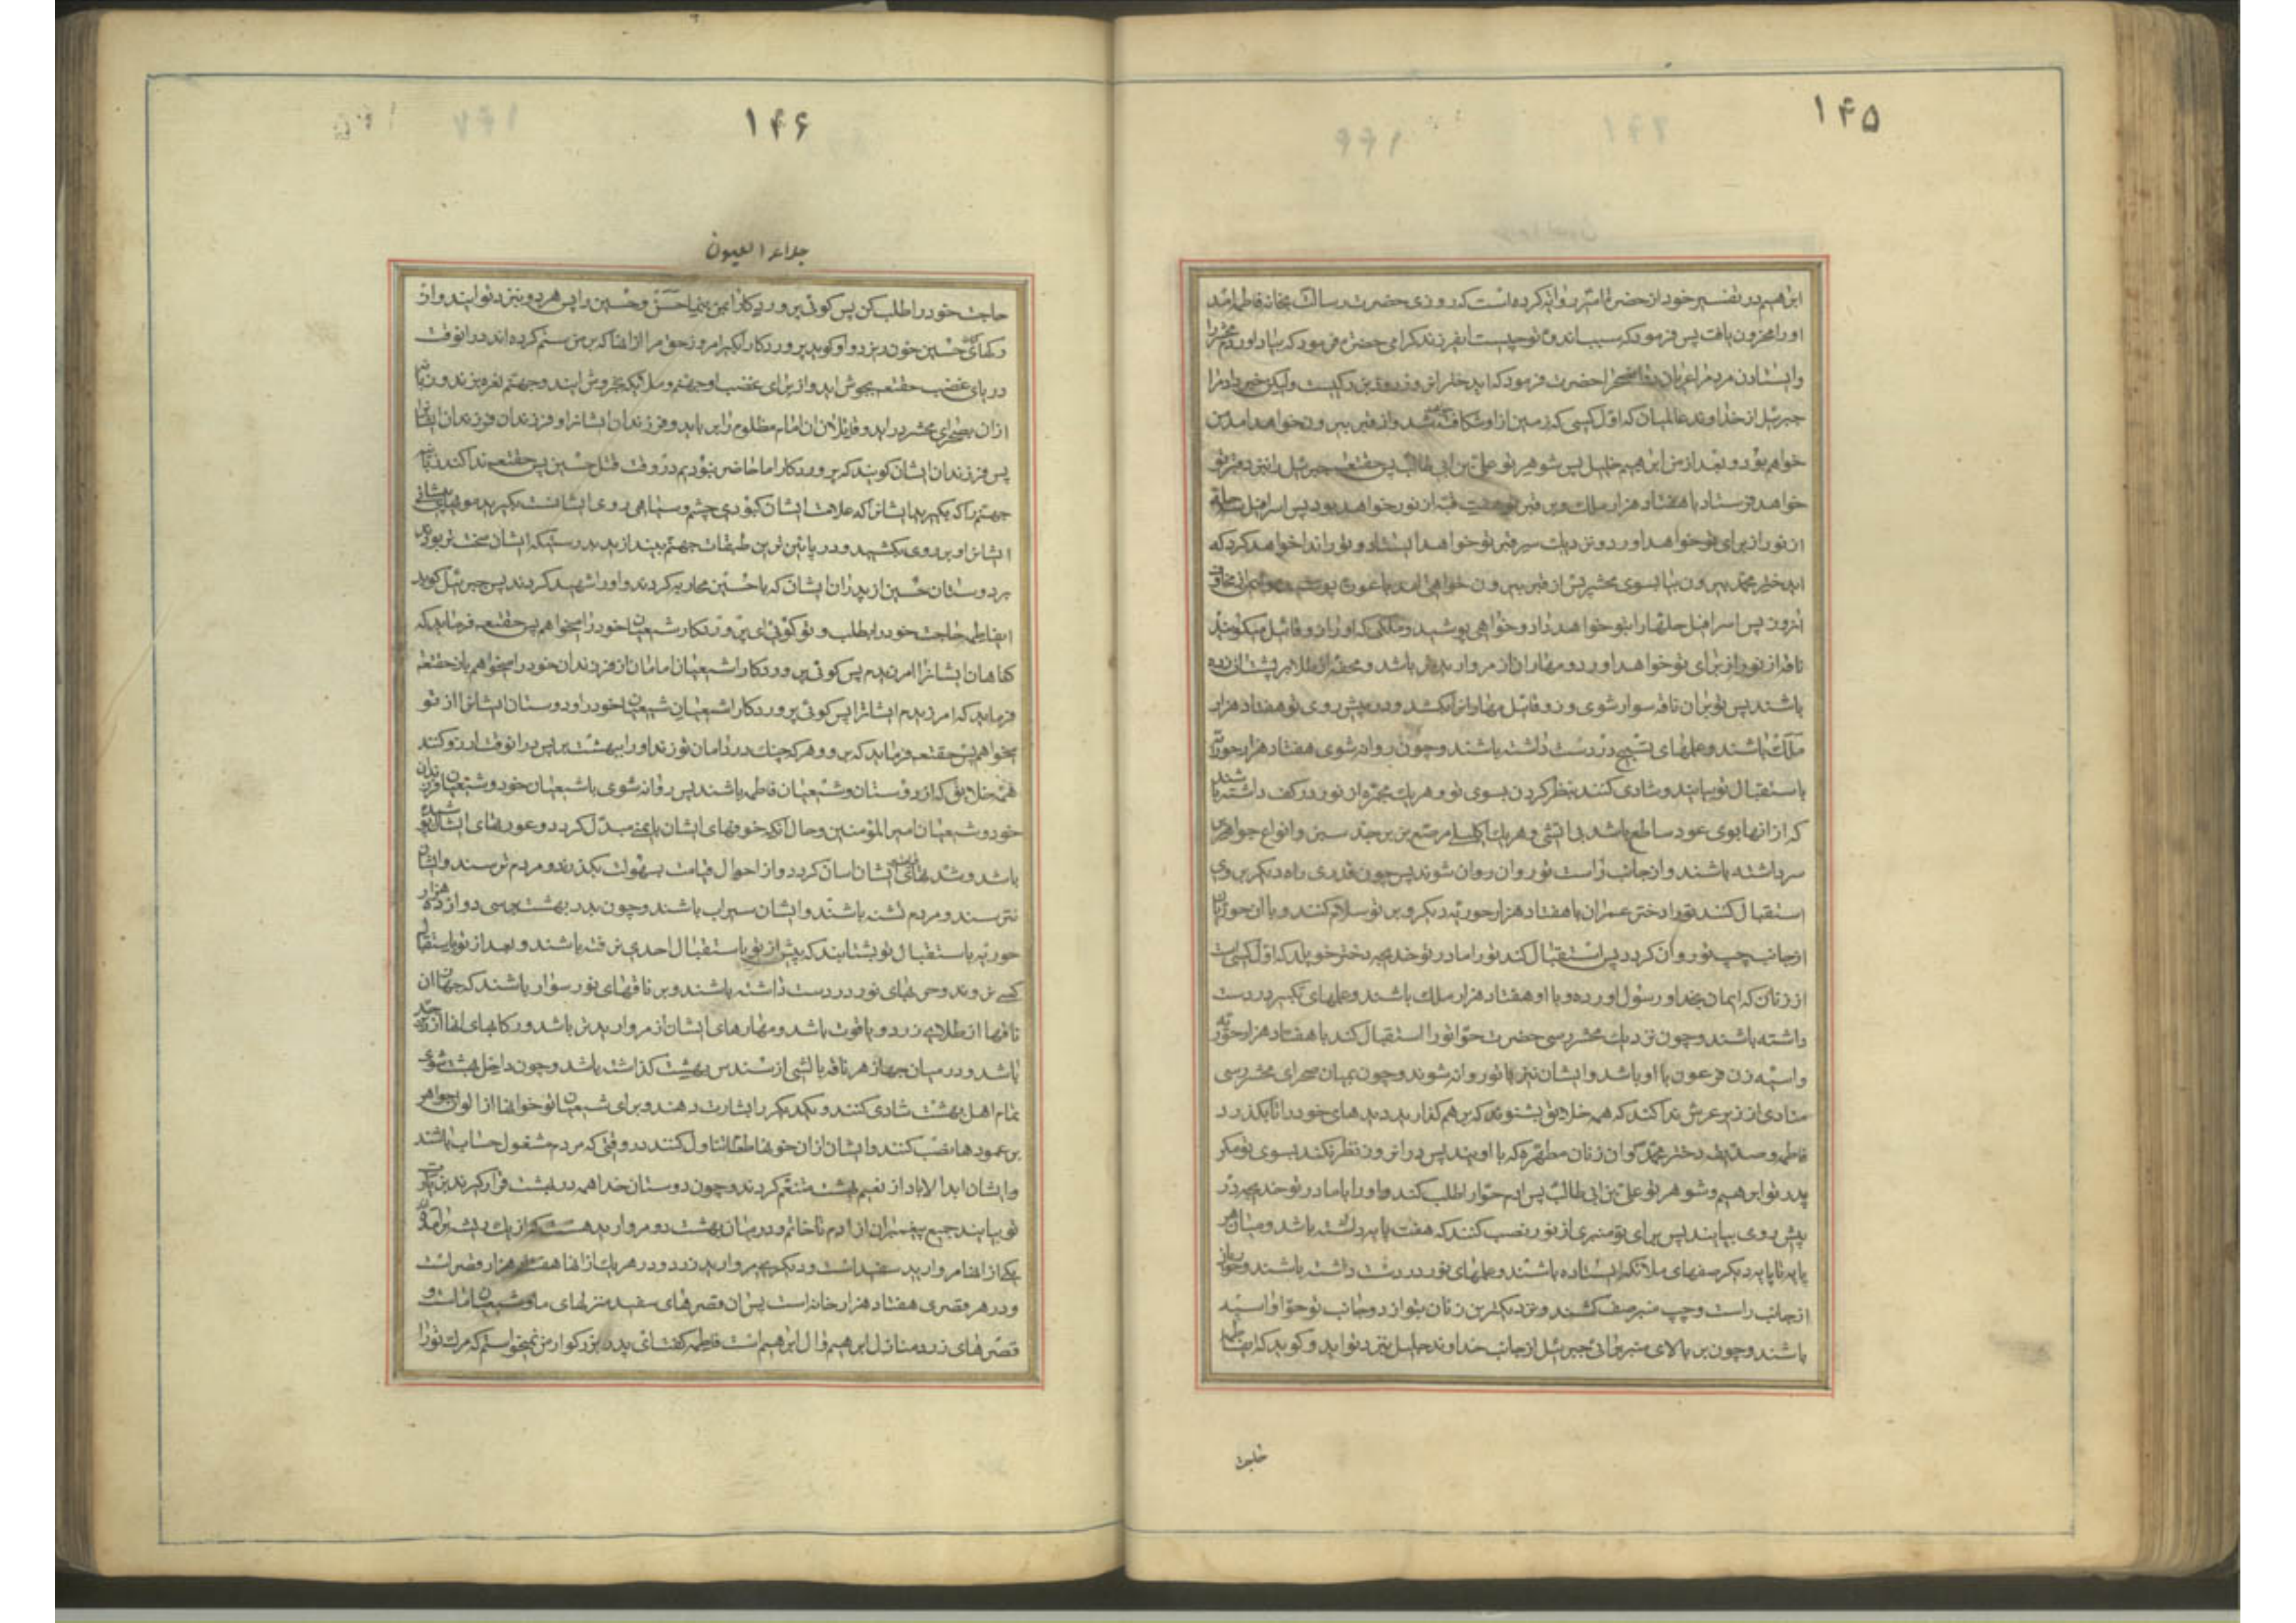 ۱۴۵
ابراهیم در تفسیر خود از حضرت امیر روایت کرده است که روزی حضرت رسالت بخانه فاطمه آمد
او را محزون یافت پس فرمود که سبب اندوه تو چیست ایفرزند گرامی حضرت فرمود که بیاد آوردم محشر را
و ایستادن مردم را عریان در حضرت فرمود که ای دختر آن روز روز بزرگیست ولیکن خبر داد مرا
جبرئیل از خداوند عالمیان که اول کسی که زمین از او شکافته شد و از قبر بیرون خواهد آمد من
خواهم بود و بعد از من ابراهیم خلیل پس شوهر تو علی بن ابی طالب پس حقتعالی جبرئیل را بنزد قبر تو
خواهد فرستاد با هفتاد هزار ملک و بر قبر تو هفت قبه از نور خواهد بود پس اسرافیل سه حله
از نور از برای تو خواهد آورد و نزدیک سر قبر تو خواهد ایستاد و تو را ندا خواهد کرد که
ای دختر محمد بیرون بیا بسوی محشر پس از قبر بیرون خواهی آمد با عورت پوشیده
آنروز پس اسرافیل حلها را بتو خواهد داد و خواهی پوشید و ملکی که او را زوقائیل میگویند
ناقه از نور از برای تو خواهد آورد و مهار آن از مروارید تر باشد و محفه از طلا بر پشت آن زده
باشند پس تو بر آن ناقه سوار شوی و زوقائیل مهار آنرا بکشد و در پیش روی تو هفتاد هزار
ملک باشند و علمهای تسبیح در دست داشته باشند و چون روانه شوی هفتاد هزار حوریه
باستقبال تو بیایند و شادی کنند بنظر کردن بسوی تو و هر یک مجمره از نور در کف داشته باشند
که از آنها بوی عود ساطع باشد بی آتشی و هر یک اکلیلی مرصع بزبرجد سبز و انواع جواهر بر
سر داشته باشند و از جانب راست تو روان روان شوند پس چون قدری راه دیگر بروی
استقبال کند تو را دختر عمران با هفتاد هزار حوریه دیگر و بر تو سلام کنند و با آن حوریان
از جانب چپ تو روان گردد پس استقبال کند تو را مادر تو خدیجه دختر خویلد که اول کسیست
از زنان که ایمان بخدا و رسول آورده و با او هفتاد هزار ملک باشند و علمهای تکبیر در دست
داشته باشند و چون نزدیک محشر رسی حضرت حوا تو را استقبال کند با هفتاد هزار حوریه
و آسیه زن فرعون با او باشد و ایشان نیز با تو روانه شوند و چون بمیان صحرای محشر رسی
منادی از زیر عرش ندا کند که همه خلایق بشنوند که بر هم گذارید دیدهای خود را تا بگذرد
فاطمه صدیقه دختر محمد و آن زنان مطهره که با اویند پس در آنروز نظر نکند بسوی تو مگر
پدر تو ابراهیم و شوهر تو علی بن ابی طالب پس آدم حوا را طلب کند و او را با مادر تو خدیجه در
پیش روی بیایند پس برای تو منبری از نور نصب کنند که هفت پایه داشته باشد و میان هر
پایه تا پایه دیگر صفهای ملائکه ایستاده باشند و علمهای نور در دست داشته باشند و حوریان
از جانب راست و چپ منبر صف کشند و نزدیکترین زنان بتو از دو جانب تو حوا و آسیه
باشند و چون بر بالای منبر برآئی جبرئیل از جانب خداوند جلیل بنزد تو آید و گوید که ایفاطمه
حاجت
۱۴۶
جلاء العیون
حاجت خود را طلب کن پس گوئی پروردگارا بمن بنما حسن و حسین را پس هر دو بنزد تو آیند و از
رگهای حسین خون ریزد و او گوید پروردگارا بگیر امروز حق مرا از آنها که بر من ستم کرده اند در آنوقت
دریای غضب حقتعالی بجوش آید و از برای غضب او جهنم و ملائکه بخروش آیند و جهنم نعره بزند و زبانه
از آن بصحرای محشر در آید و قاتلان آن امام مظلوم را برباید و فرزندان ایشانرا و فرزندان فرزندان ایشانرا
پس فرزندان ایشان گویند که پروردگارا ما حاضر نبودیم در وقت قتل حسین پس حقتعالی ندا کند زبانیه
جهنم را که بگیرید ایشانرا که علامت ایشان کبودی چشم و سیاهی روی ایشانست بگیرید موی پیشانی
ایشانرا و بر روی بکشید و در پائین ترین طبقات جهنم بیندازید بدرستیکه ایشان سخت تر بودند
بر دوستان حسین از پدران ایشان که با حسین محاربه کردند و او را شهید کردند پس جبرئیل گوید
ایفاطمه حاجت خود را بطلب و تو گوئی ای پروردگار شیعیان خود را میخواهم پس حقتعالی فرماید که
گناهان ایشانرا آمرزیدم پس گوئی پروردگارا شیعیان امامان از فرزندان خود را میخواهم باز حقتعالی
فرماید که آمرزیدم ایشانرا پس گوئی پروردگارا شیعیان شیعیان خود را و دوستان ایشانرا از تو
میخواهم پس حقتعالی فرماید که برو و هر که چنگ در دامان تو زند او را ببهشت بر پس در آنوقت آرزو کنند
همه خلایق که از دوستان و شیعیان فاطمه باشند پس روانه شوی با شیعیان خود و شیعیان فرزندان
خود و شیعیان امیر المؤمنین و حال آنکه خوفهای ایشان بایمنی مبدل گردد و عورتهای ایشان پوشیده
باشد و شدتهای ایشان آسان گردد و از احوال قیامت بسهولت بگذرند و مردم ترسند و ایشان
نترسند و مردم تشنه باشند و ایشان سیراب باشند و چون بدر بهشت برسی دوازده هزار
حوریه باستقبال تو بشتابند که پیش از تو باستقبال احدی نرفته باشند و بعد از تو باستقبال
کسی نروند و حربهای نور در دست داشته باشند و بر ناقهای نور سوار باشند که جهاز آن
ناقها از طلای زرد و یاقوت باشد و مهارهای ایشان از مروارید تر باشد و رکابهای آنها از زبرجد
باشد و در میان جهاز هر ناقه بالشی از سندس بهشت گذاشته باشد و چون داخل بهشت شوی
تمام اهل بهشت شادی کنند و یکدیگر را بشارت دهند و برای شیعیان تو خوانها از الوان جواهر
بر عمودها نصب کنند و ایشان از آن خوانها طعامها تناول کنند در وقتی که مردم مشغول حساب باشند
و ایشان ابدالاباد از نعیم بهشت متنعم گردند و چون دوستان خدا همه در بهشت قرار گیرند بزیارت
تو بیایند جمیع پیغمبران از آدم تا خاتم و در میان بهشت دو مروارید هست که از یک رشته برآمده
یکی از آنها مروارید سفید است و دیگری مروارید زرد و در هر یک از آنها هفتاد هزار قصر است
و در هر قصری هفتاد هزار خانه است پس آن قصرهای سفید منزلهای ما و شیعیان ما است و
قصرهای زرد منازل ابراهیم و آل ابراهیم است فاطمه گفت ای پدر بزرگوار من نمیخواستم که مرگ تو را